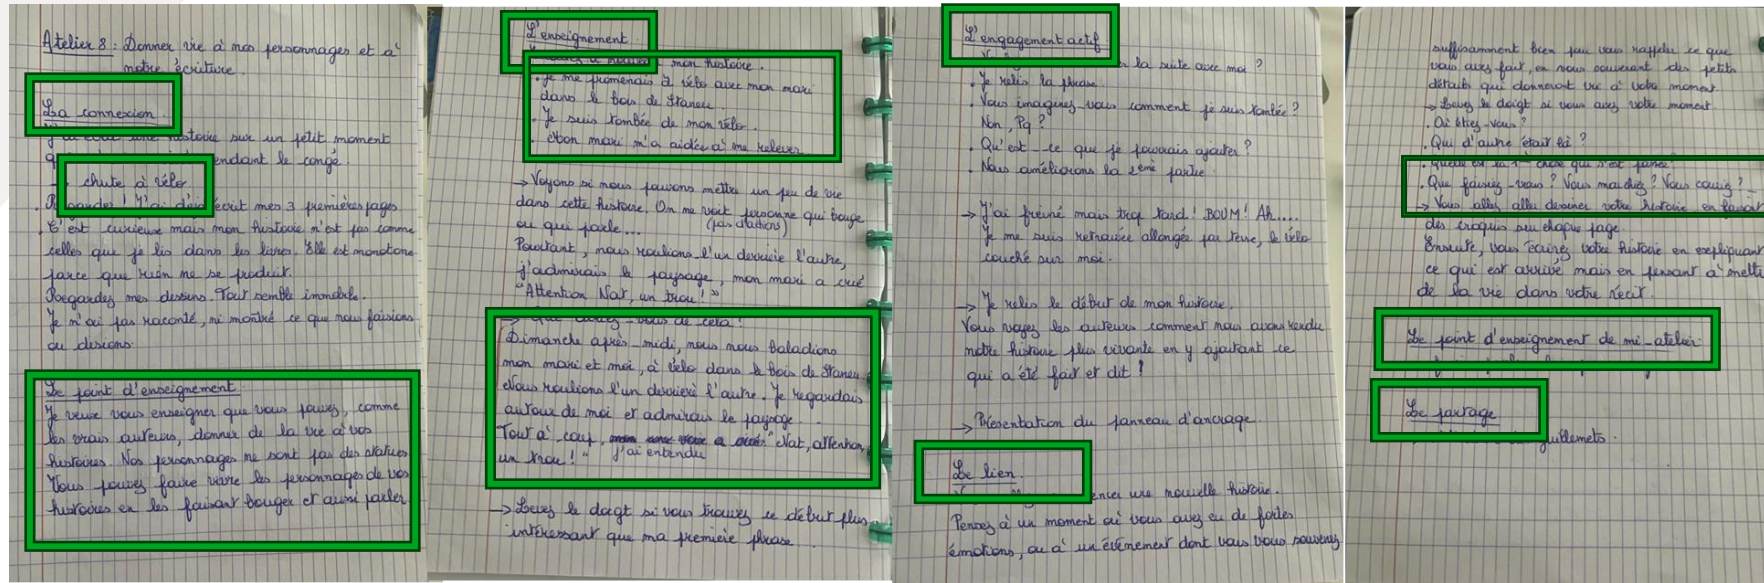 Atelier 8 : Donner vie à nos personnages et à
notre écriture.
La connexion
J'ai écrit une histoire sur un petit moment
pendant le congé.
→ chute à vélo.
. Regardez ! J'ai déjà écrit mes 3 premières pages
. C'est curieux mais mon histoire n'est pas comme
celles que je lis dans les livres. Elle est monotone
parce que rien ne se produit.
Regardez mes dessins. Tout semble immobile.
Je n'ai pas raconté, ni montré ce que nous faisions
ou disions.
Le point d'enseignement.
Je veux vous enseigner que vous pouvez, comme
les vrais auteurs, donner de la vie à vos
histoires. Nos personnages ne sont pas des statues
Vous pouvez faire vivre les personnages de vos
histoires en les faisant bouger et aussi parler
L'enseignement.
mon histoire.
. Je me promenais à vélo avec mon mari
dans le bois de Staneu.
. Je suis tombée de mon vélo.
. Mon mari m'a aidée à me relever
→ Voyons si nous pouvons mettre un peu de vie
dans cette histoire. On ne voit personne qui bouge
ou qui parle... (pas d'actions)
Pourtant, nous roulions l'un derrière l'autre,
j'admirais le paysage, mon mari a crié
"Attention Nat, un trou !"
de cela ?
Dimanche après-midi, nous nous baladions
mon mari et moi, à vélo dans le bois de Staneu
Nous roulions l'un derrière l'autre. Je regardais
autour de moi et admirais le paysage.
Tout à coup, j'ai entendu "Nat, attention,
un trou !"
→ Levez le doigt si vous trouvez ce début plus
intéressant que ma première phrase.
L'engagement actif
la suite avec moi ?
. Je relis la phrase
. Vous imaginez-vous comment je suis tombée ?
Non, Pq ?
. Qu'est-ce que je pourrais ajouter ?
. Nous améliorons la 2ème partie.
→ J'ai freiné mais trop tard ! BOUM ! Ah....
Je me suis retrouvée allongée par terre, le vélo
couché sur moi.
→ Je relis le début de mon histoire.
Vous voyez les auteurs comment nous avons rendu
notre histoire plus vivante en y ajoutant ce
qui a été fait et dit !
→ Présentation du panneau d'ancrage.
Le lien.
une nouvelle histoire.
Pensez à un moment où vous avez eu de fortes
émotions, ou à un événement dont vous vous souvenez
suffisamment bien pour vous rappeler ce que
vous avez fait, en vous souvenant des petits
détails qui donneront vie à votre moment.
→ Levez le doigt si vous avez votre moment.
. Où étiez-vous ?
. Qui d'autre était là ?
. Quelle est la 1ère chose qui s'est passée ?
. Que faisiez-vous ? Vous marchiez ? Vous couriez ?
→ Vous allez aller dessiner votre histoire en faisant
des croquis sur chaque page.
Ensuite, vous écrirez votre histoire en expliquant
ce qui est arrivé mais en pensant à mettre
de la vie dans votre récit.
Le point d'enseignement de mi-atelier
Le partage
guillemets.